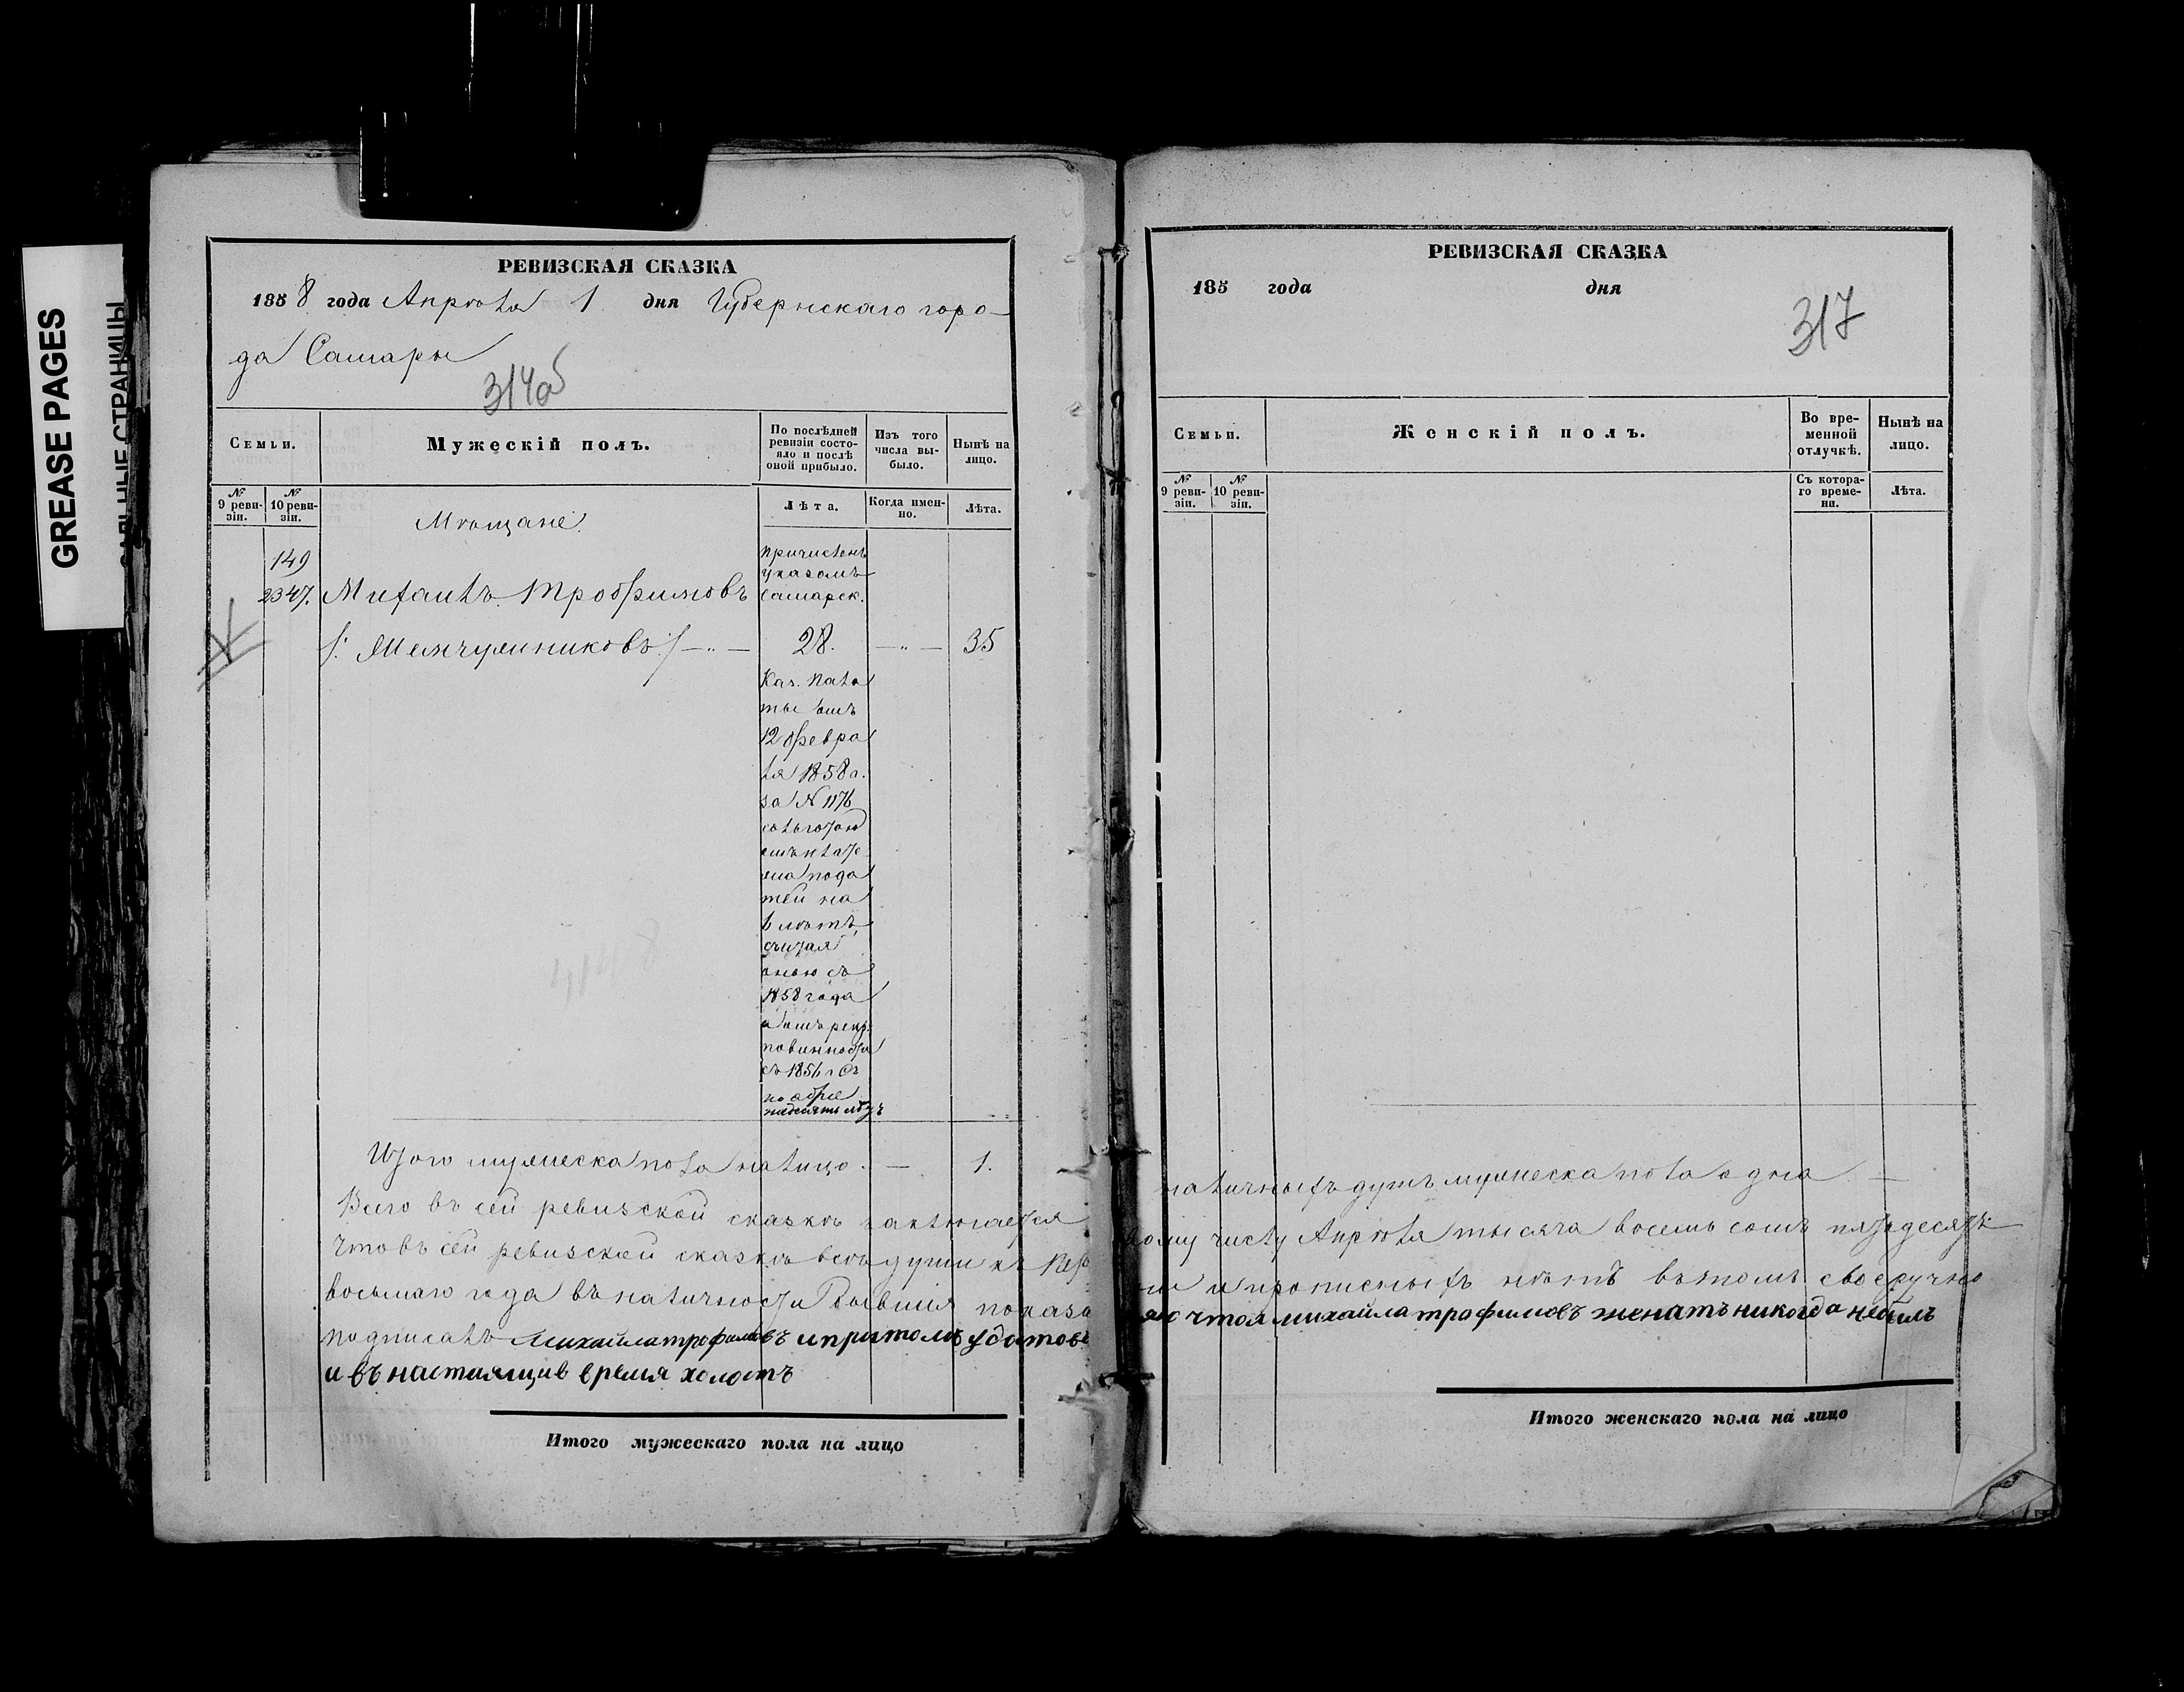 GREASE PAGES
САЛЬНЫЕ СТРАНИЦЫ
РЕВИЗСКАЯ СКАЗКА
1858 года Апрѣля 1 дня Губернскаго горо-
да Самары
314об
Семьи.
Мужескій полъ.
По послѣдней ревизіи состояло и послѣ оной прибыло.
Изъ того числа выбыло.
Нынѣ на лицо.
№ 9 ревизіи.
№ 10 ревизіи.
Мѣщане
Лѣта.
Когда именно.
Лѣта.
149
2347.
Михаилъ Трофимовъ
/: :/ — „ —
причисленъ
указомъ
Самарск.
28.
— „ —
35
Каз. Пала
ты отъ
12 февра
ля 1858 г.
за № 1176
съ льготою
отъ плате
жа пода
тей на
6 лѣтъ,
считая
оную съ
1858 года
а отъ рекр.
повинности
Итого мужеска пола на лицо. — 1.
Всего въ сей ревизской сказкѣ заключается
Что въ сей ревизской сказкѣ всѣ души къ пер
восьмаго года въ наличности бывшія показа
подписалъ михайла трофимовъ и притомъ удостове
и въ настоящив время холостъ
Итого мужескаго пола на лицо
РЕВИЗСКАЯ СКАЗКА
185 года дня
317
Семьи.
Женскій полъ.
Во временной отлучкѣ.
Нынѣ на лицо.
№ 9 ревизіи.
№ 10 ревизіи.
Съ котораго времени.
Лѣта.
наличныхъ душъ мужеска пола одна —
вому числу Апрѣля тысяча восемь сотъ пятьдесятъ
ны и прописныхъ нѣтъ въ томъ своеручно
яю что я михайла трофимовъ женатъ никогда небылъ
Итого женскаго пола на лицо